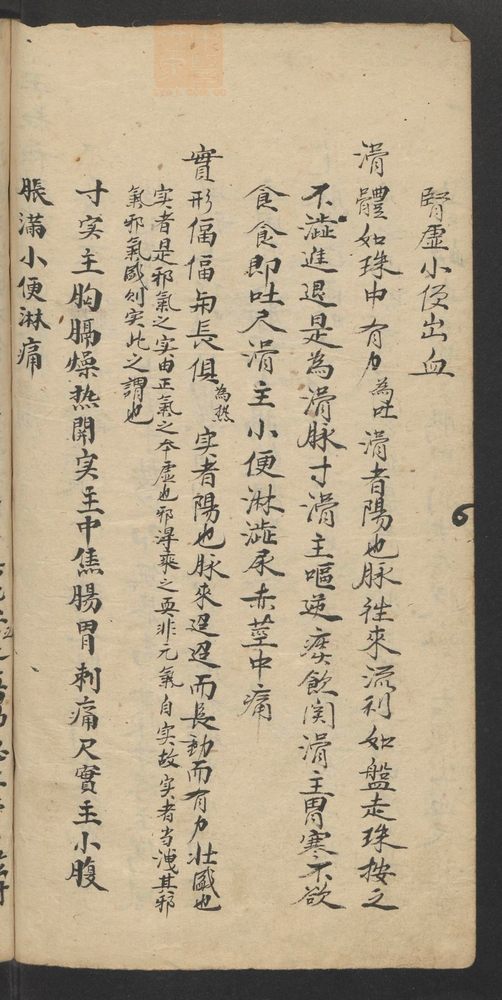 腎虛小便出血
滑體如珠中有力為吐滑者陽也脉往來流利如盤走珠按之
不澁進退是為滑脉寸滑主嘔逆痰飲関滑主胃寒不欲
食食即吐尺滑主小便淋澁尿赤莖中痛
實形偪偪与長俱為热实者陽也脉來迢迢而長動而有力壮盛也
实者是邪氣之实由正氣之夲虛也邪淂乘之更非元氣自实故实者当洩其邪
氣邪氣盛則实此之謂也
寸实主胸膈燥热関实主中焦腸胃刺痛尺實主小腹
脹滿小便淋痛
6